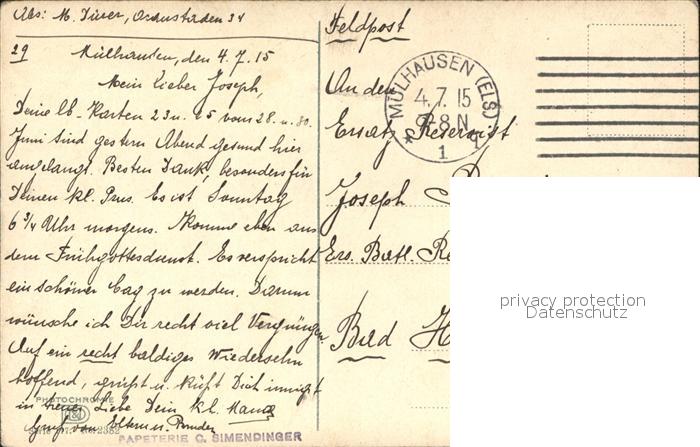 Abs: M. Ordustaden 34
29 Mülhausen, den 4.7.15
Mein lieber Joseph,
Deine lb. Karten 23 u. 25 vom 28. u. 30.
Juni sind gestern Abend gesund hier
angelangt. Besten Dank, besonders für
Deinen kl. Es ist Sonntag
6 3/4 Uhr morgens. Komme eben aus
dem Frühgottesdienst. Es verspricht
ein schöner Tag zu werden. Darum
wünsche ich Dir recht viel Vergnügen.
Auf ein recht baldiges Wiedersehn
hoffend, grüßt u. küßt Dich innigst
in treuer Liebe Dein kl.
Gruß von Eltern u. Bruder
PHOTOCHROMIE
Serie 2382
PAPETERIE C. SIMENDINGER
Feldpost
MÜLHAUSEN (ELS)
4.7.15
8 N
* 1
An den
Ersatz Reservist
Joseph
Ers. Batl.
Bad H
privacy protection
Datenschutz